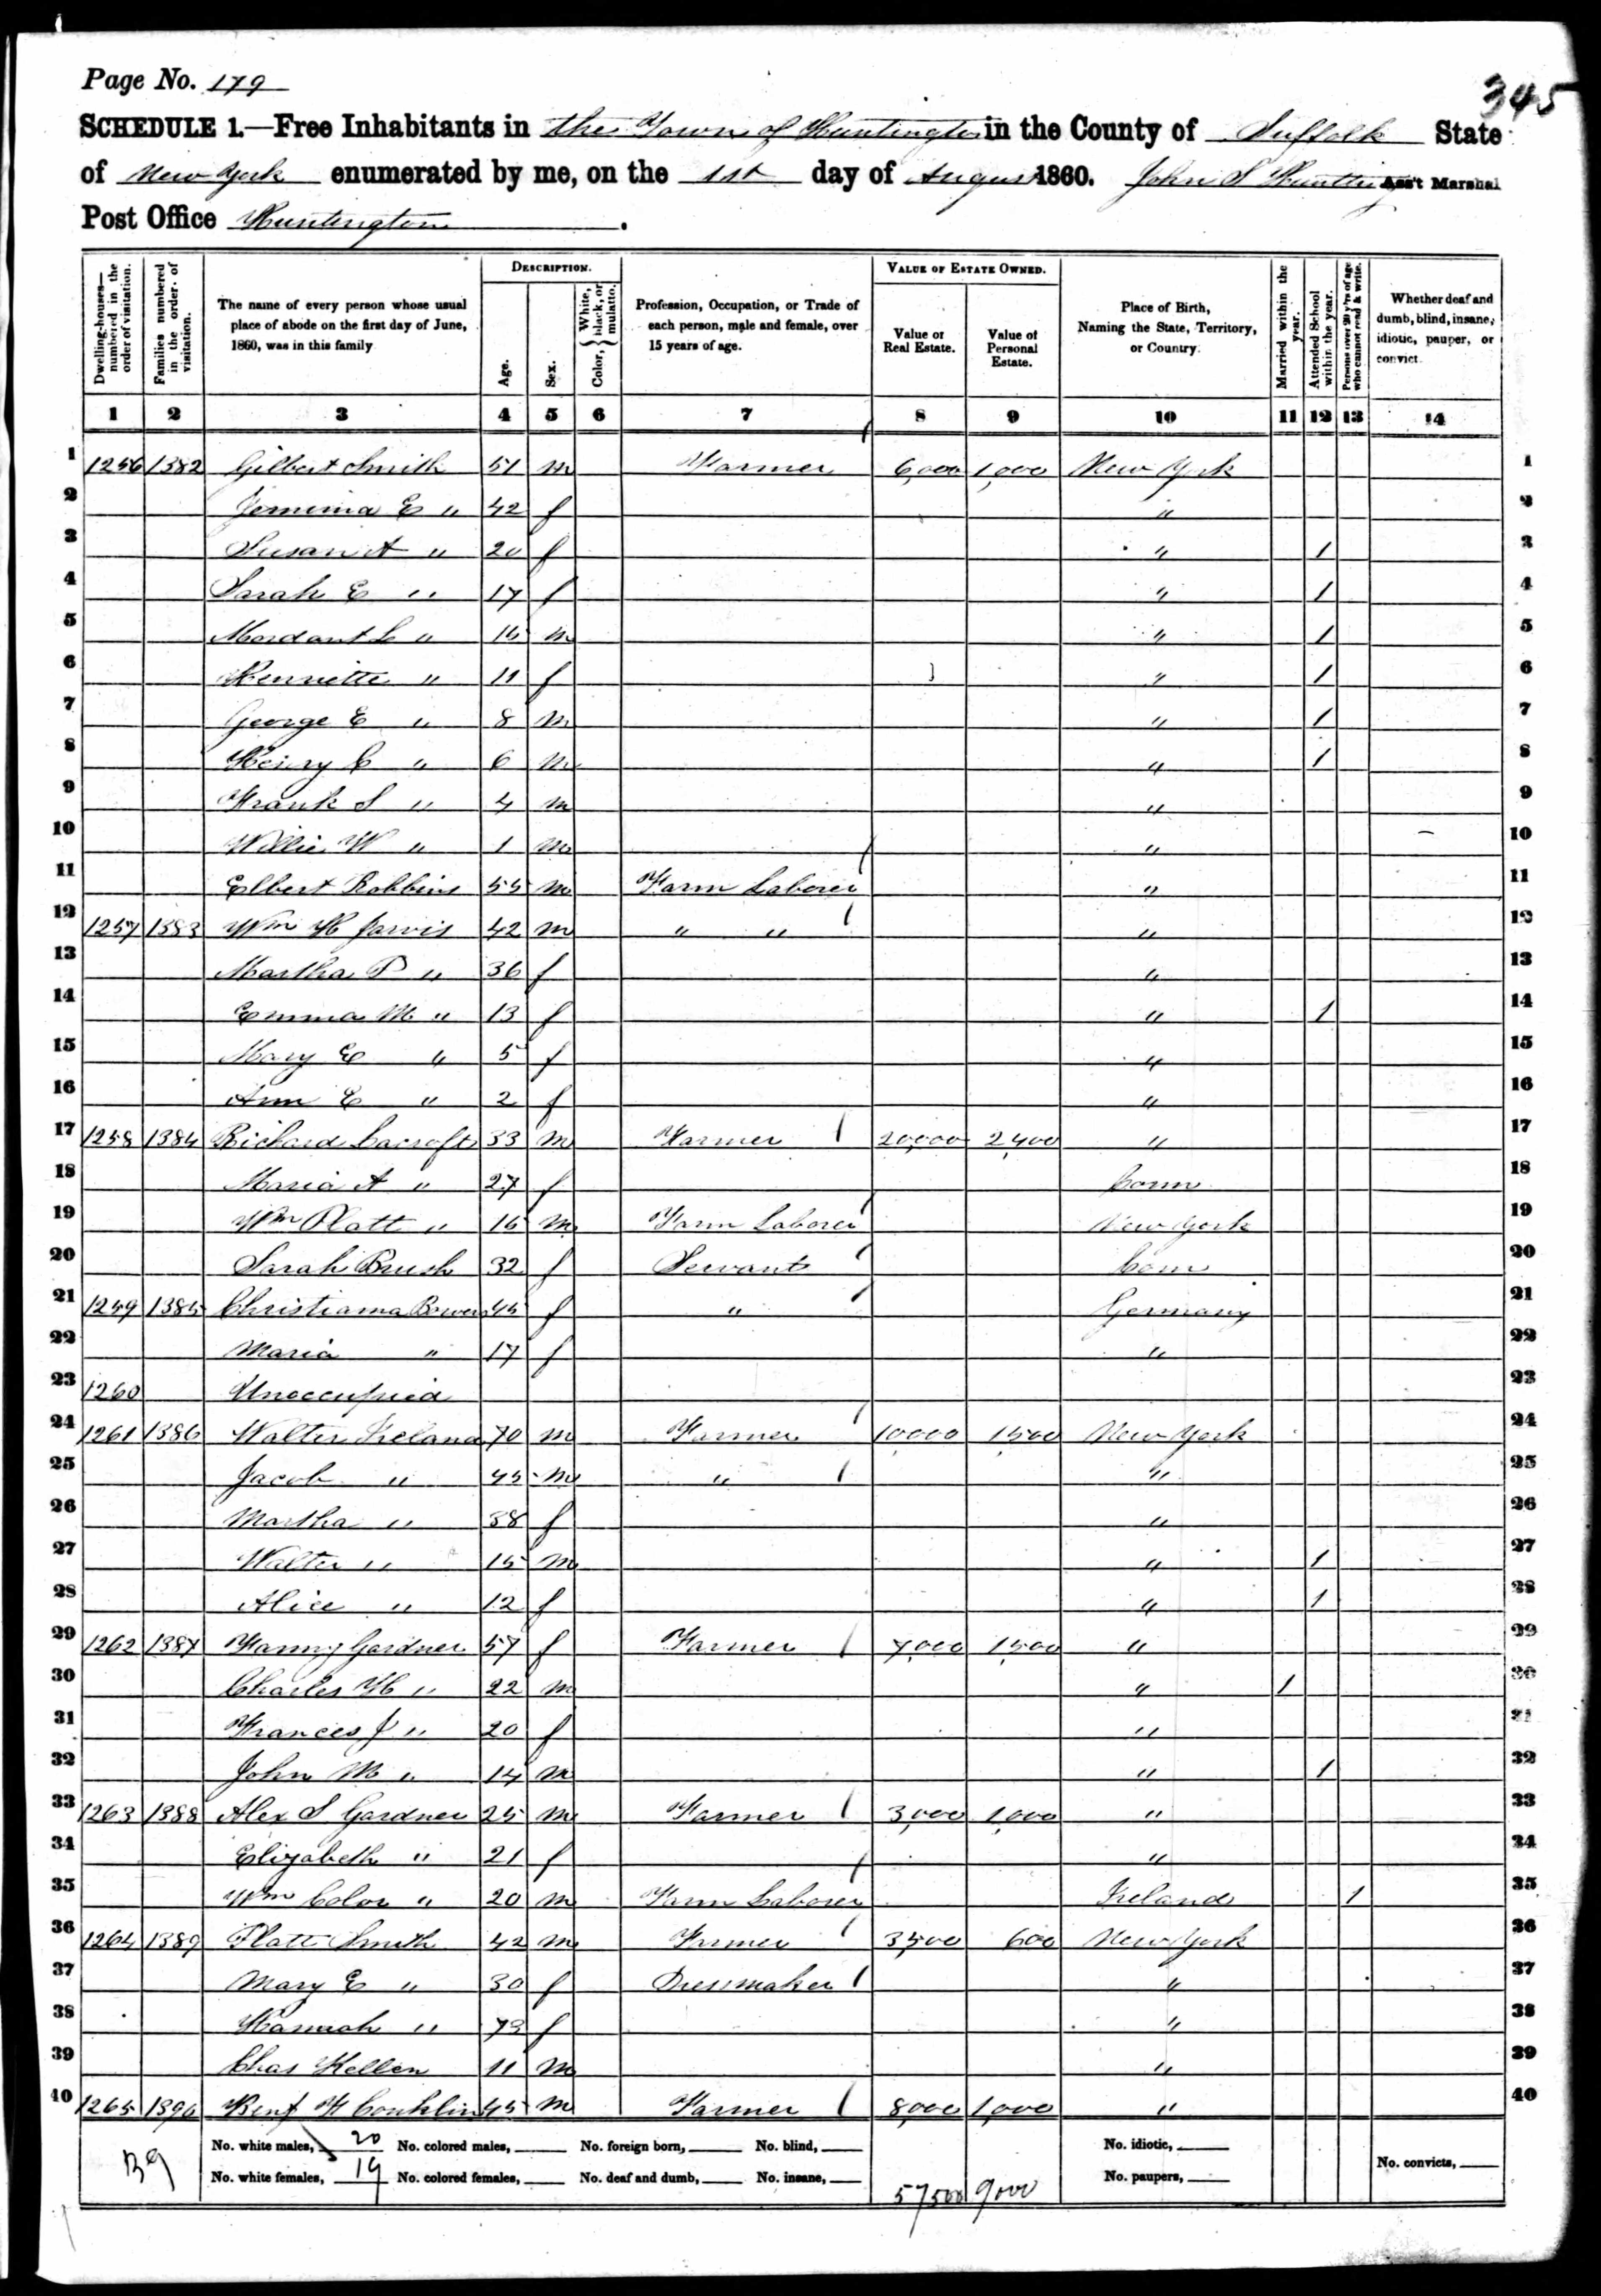 Page No. 179
345
SCHEDULE 1.—Free Inhabitants in the Town of Huntington in the County of Suffolk State
of New York enumerated by me, on the 1st day of August 1860. John S Ass't Marshal
Post Office Huntington.
Dwelling-houses—numbered in the order of visitation. Families numbered in the order of visitation. The name of every person whose usual place of abode on the first day of June, 1860, was in this family DESCRIPTION. Age. Sex. Color, { White, black, or mulatto. Profession, Occupation, or Trade of each person, male and female, over 15 years of age. VALUE OF ESTATE OWNED. Value of Real Estate. Value of Personal Estate. Place of Birth, Naming the State, Territory, or Country. Married within the year. Attended School within the year. Persons over 20 y'rs of age who cannot read & write. Whether deaf and dumb, blind, insane, idiotic, pauper, or convict.
1 2 3 4 5 6 7 8 9 10 11 12 13 14
1 1256 1382 Gilbert Smith 51 m Farmer 6,000 1,000 New York 1
2 Jemima E " 42 f " 2
3 Susan A " 20 f " 1 3
4 Sarah E " 17 f " 1 4
5 L " m " 1 5
6 Henriette " 11 f " 1 6
7 George E " 8 m " 1 7
8 Henry C " 6 m " 1 8
9 Frank S " 4 m " 9
10 Willie W " 1 m " 10
11 Elbert Robbins 55 m Farm Laborer " 11
12 1257 1383 Wm H Jarvis 42 m " " " 12
13 Martha P " 36 f " 13
14 Emma M " 13 f " 1 14
15 Mary E " 5 f " 15
16 Ann E " 2 f " 16
17 1258 1384 Richard 33 m Farmer 20,000 2,400 " 17
18 Maria A " 27 f Conn 18
19 Wm Platt " m Farm Laborer New York 19
20 Sarah Brush 32 f Servant Conn 20
21 1259 1385 Christiana 45 f " Germany 21
22 Maria " 17 f " 22
23 1260 Unoccupied 23
24 1261 1386 Walter Ireland 70 m Farmer 10,000 1,500 New York 24
25 Jacob " 45 m " " 25
26 Martha " 38 f " 26
27 Walter " 15 m " 1 27
28 Alice " 12 f " 1 28
29 1262 1387 Fanny Gardner 57 f Farmer 7,000 1,500 " 29
30 Charles H " 22 m " 1 30
31 Frances J " 20 f " 31
32 John M " 14 m " 1 32
33 1263 1388 Alex S Gardner 25 m Farmer 3,000 1,000 " 33
34 Elizabeth " 21 f " 34
35 Wm " 20 m Farm Laborer Ireland 1 35
36 1264 1389 Platt Smith 42 m Farmer 3,500 600 New York 36
37 Mary E " 30 f Dressmaker " 37
38 Hannah " 73 f " 38
39 Chas 11 m " 39
40 1265 1390 Benj F Conklin 45 m Farmer 8,000 1,000 " 40
39
No. white males, 20 No. colored males, No. foreign born, No. blind, No. idiotic,
No. white females, 19 No. colored females, No. deaf and dumb, No. insane, No. paupers, No. convicts,
57500 9000